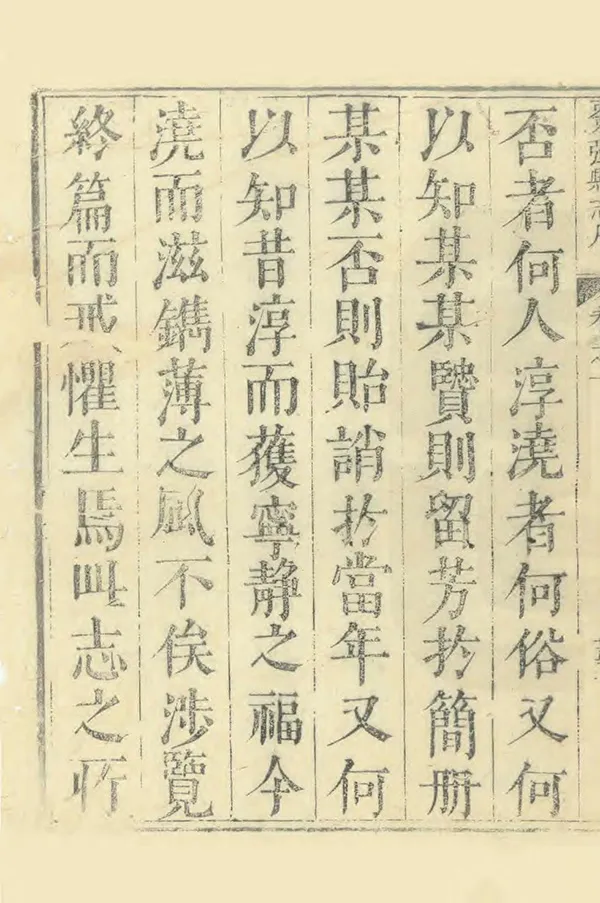 强縣志
否者何人淳澆者何俗又何
以知某某賢則留芳扵簡册
某某否則貽誚扵當年又何
以知昔淳而獲寧靜之福今
澆而滋鐫薄之風不俟涉覽
終篇而戒懼生焉志之所